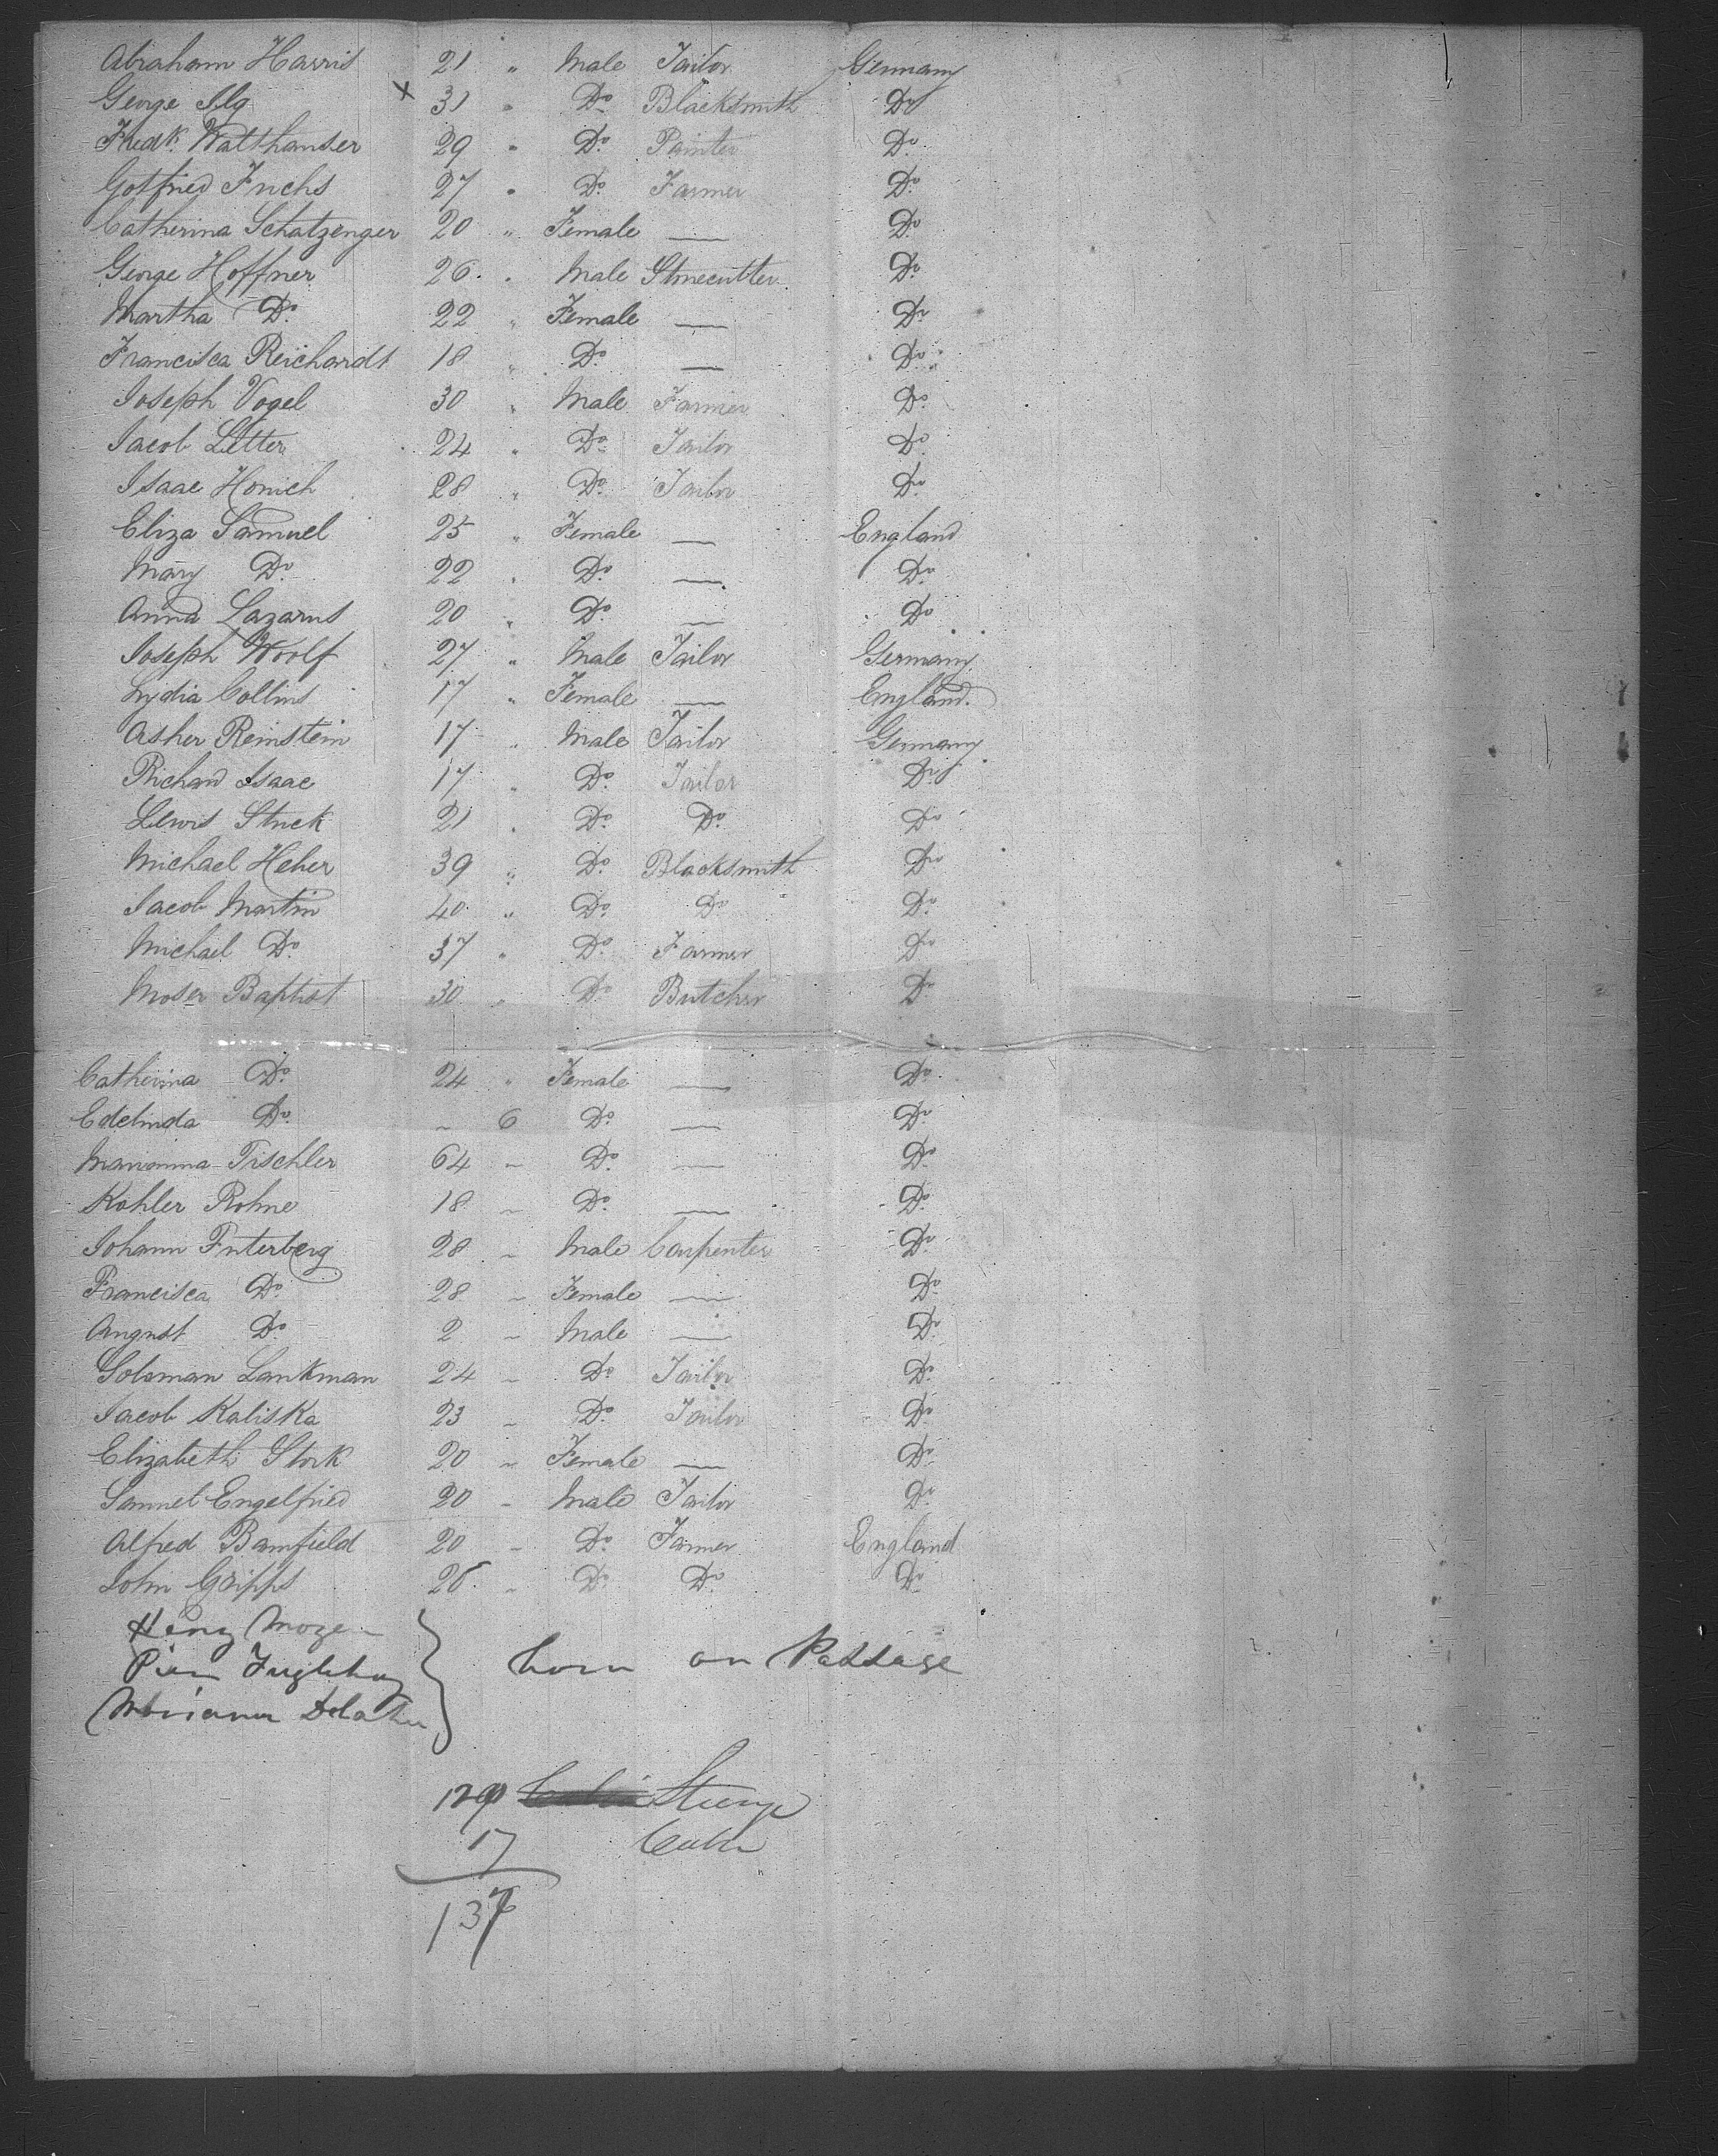 Abraham Harris 21 " Male Tailor Germany
George Ilg x 31 " Do Blacksmith Do
Fredk. Walthauser 29 " Do Painter Do
Gotfried Fuchs 27 " Do Farmer Do
Catherina Schatzenger 20 " Female — Do
George Hoffner 26 " Male Stonecutter Do
Martha Do 22 " Female — Do
Francisca Reichardt 18 " Do — Do
Joseph Vogel 30 " Male Farmer Do
Jacob Litter 24 " Do Tailor Do
Isaac Honich 28 " Do Tailor Do
Eliza Samuel 25 " Female — England
Mary Do 22 " Do — Do
Anna Lazarus 20 " Do — Do
Joseph Woolf 27 " Male Tailor Germany
Lydia Collins 17 " Female — England
Asher Reinstein 17 " Male Tailor Germany
Richard Isaac 17 " Do Tailor Do
Lewis Stuck 21 " Do Do Do
Michael Heher 39 " Do Blacksmith Do
Jacob Martin 40 " Do Do Do
Michael Do 37 " Do Farmer Do
Moser Baptist 30 " Do Butcher Do
Catherina Do 24 " Female — Do
Edelinda Do " 6 Do — Do
Marianna Tischler 64 " Do — Do
Kohler Rohne 18 " Do — Do
Johann Puterberg 28 " Male Carpenter Do
Francisca Do 28 " Female — Do
August Do 2 " Male — Do
Soloman Lankman 24 " Do Tailor Do
Jacob Kaliska 23 " Do Tailor Do
Elizabeth Stork 20 " Female — Do
Samuel Engelfried 20 " Male Tailor Do
Alfred Bamfield 20 " Do Farmer England
John Gripps 26 " Do Do Do
Henry Moze
born on Passage
129 Steerage
17 Cabin
137